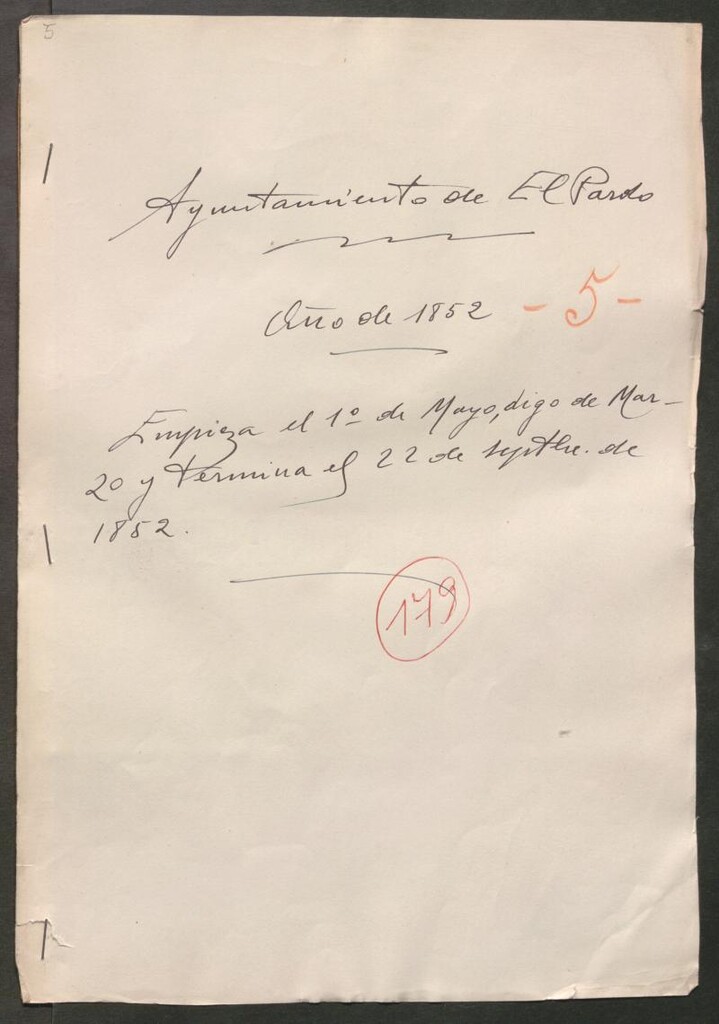 5
Ayuntamiento de El Pardo
Año de 1852 - 5 -
Empieza el 1º de Mayo, digo de Mar-
zo y termina el 22 de septbre. de
1852.
179